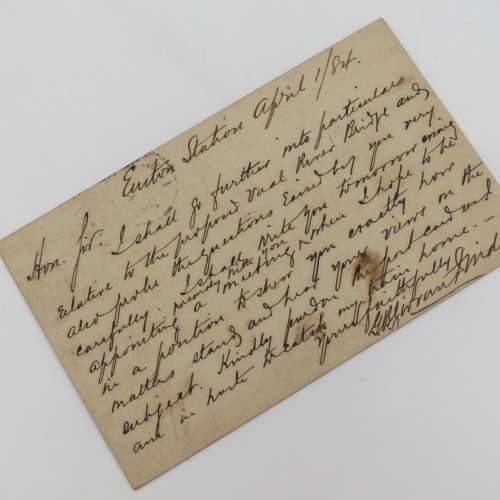 Euston Station April 1/84.
Hon. Sir. I shall go further into particulars
relative to the proposed Vaal River Bridge and
also probe the questions raised by you very
carefully. I shall write you tomorrow
appointing a meeting with you when I hope to be
in a position to show you exactly how
matters stand and hear your views on the
subject. Kindly pardon the post card and
am in haste to catch my train home. -
Yours faithfully